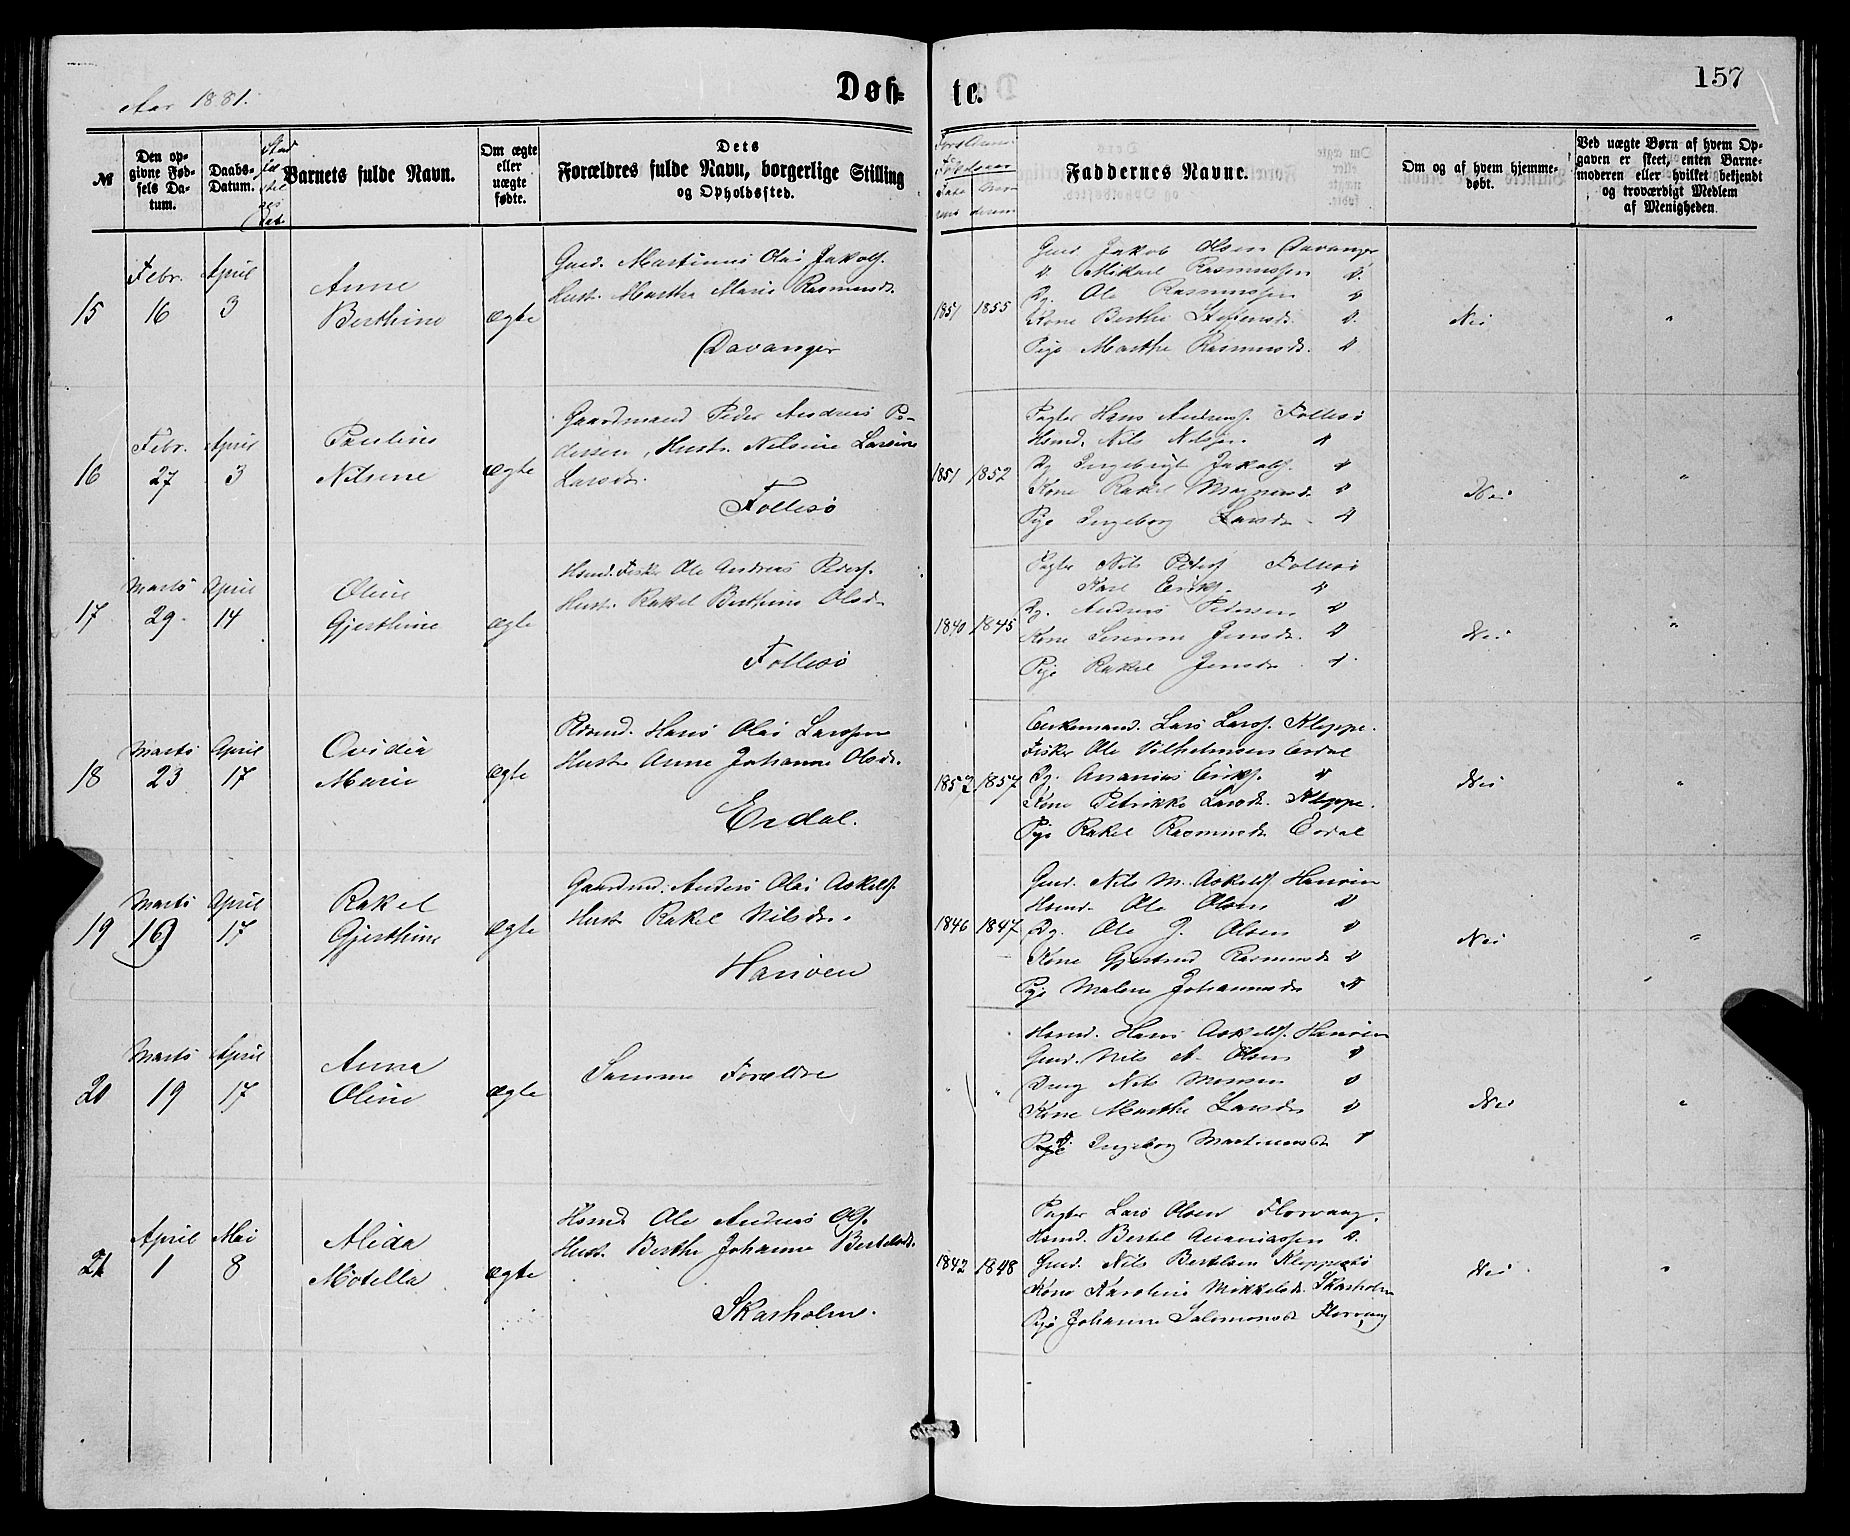 Aar 1881.
Døb-
te.
157
№
Den op-
givne Fød-
sels Da-
tum.
Daabs-
Datum.
Barnets fulde Navn.
Om ægte
eller
uægte
fødte.
Dets
Forældres fulde Navn, borgerlige Stilling
og Opholdssted.
Faddernes Navne.
Om og af hvem hjemme-
døbt.
Ved uægte Børn af hvem Op-
gaven er skeet, enten Barne-
moderen eller hvilket bekjendt
og troværdigt Medlem
af Menigheden.
15
Febr.
16
April
3
Anne
Berthine
ægte
Gmd. Martinus Olai Jakobs.
Hust. Martha Marie Rasmusd.
Davanger
1851 1855
Gmd Jakob Olsen Davanger
" Mikael Rasmussen "
Dg. Ole Rasmussen "
Kone Berthe Steffensd. "
Pige Marthe Rasmusd. "
Nei
"
16
Febr.
27
April
3
Pauline
Nilsine
ægte
Gaardmand Peder Andreas Pe-
dersen, Hustr. Nilsine Larsine
Larsdr.
Follesø
1851 1852
Pagter Hans Andreass. Follesø
Hsmd. Nils Nilsen "
Dg Ingebrigt Jakobs. "
Kone Rakel Magnusd. "
Pige Ingeborg Larsdr "
Nei
"
17
Marts
29
April
14
Oline
Gjerthine
ægte
Hsmd. Fisker Ole Andreas Peders.
Hustr. Rakel Berthine Olsdr
Follesø
1840 1845
Pagter Nils Peders Follesø
Karl Eriks. "
Dg. Andreas Pedersen "
Kone Serine Jensd. "
Pige Rakel Jensdr "
Nei
"
18
Marts
23
April
17
Ovidia
Marie
ægte
Hans Olai Larssen
Hustr Anne Johanne Olsdr.
Erdal.
1852 1857
Lars Larss. Kleppe.
Fisker Ole Vilhelmsen Erdal
Dg. Ananias Eriks. "
Kone Petrikke Larsdr. Kleppe.
Pige Rakel Rasmusdr Erdal
Nei
"
19
Marts
19
April
17
Rakel
Gjerthine
ægte
Gaardmd. Anders Olai Askelds.
Hustr Rakel Nilsdr.
Hanøen
1846 1847
Gmd. Nils M. Askelds Hanøen
Hsmd. Ole Olsen "
Dg. Ole J. Olsen "
Kone Gjertrud Rasmusdr "
Pige Malene Johannesdr "
Nei
"
20
Marts
19
April
17
Anna
Oline
ægte
Samme Forældre
" "
Hsmd. Hans Askelds. Hanøen
Gmd. Nils A. Olsen "
Dreng Nils Monsen "
Kone Marthe Larsdr "
Pige Ingeborg Martinusdr "
Nei
"
21
April
1
Mai
8
Alida
Motella
ægte
Hsmd. Ole Andreas Ols.
Hust. Berthe Johanne Bertelsd.
Skarholm.
1842 1848
Pagter Lars Olsen Florvaag.
Hsmd. Bertel Ananiassen "
Gmd. Nils Bertelsen Kleppestø
Kone Karoline Mikkelsd. Skarholm
Pige Johanne Salomonsd Florvaag
Nei
"